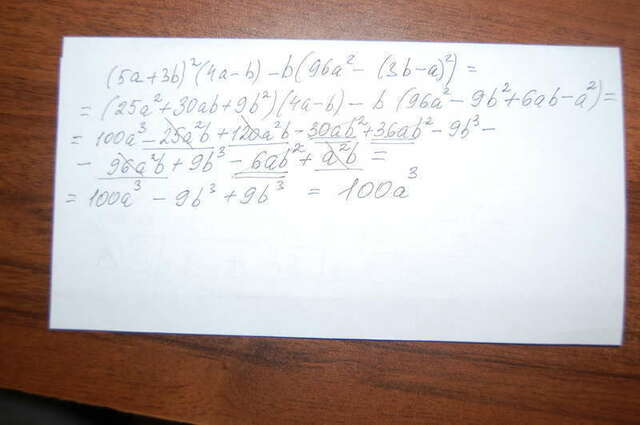 (5a+3b)²(4a-b)-b(96a²-(3b-a)²)=
=(25a²+30ab+9b²)(4a-b)-b(96a²-9b²+6ab-a²)=
=100a³-25a²b+120a²b-30ab²+36ab²-9b³-
-96a²b+9b³-6ab²+a²b=
=100a³-9b³+9b³=100a³